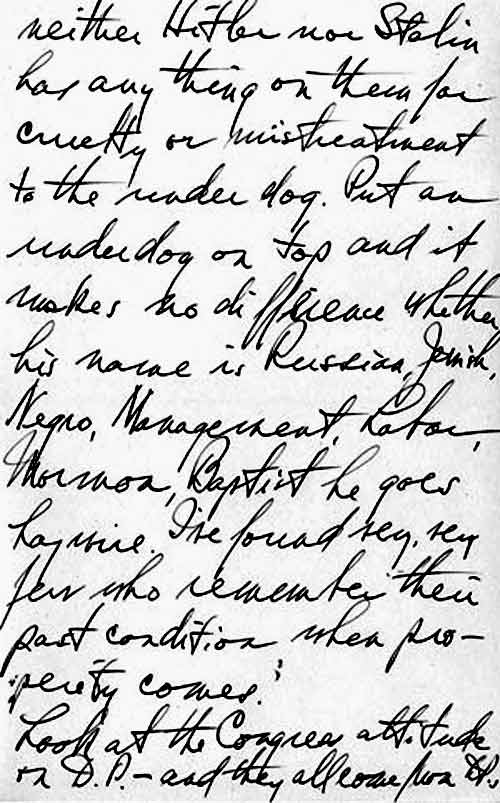 neither Hitler nor Stalin
has any thing on them for
cruelty or mistreatment
to the under dog. Put an
underdog on top and it
makes no difference whether
his name is Russian, Jewish,
Negro, Management, Labor,
Mormon, Baptist he goes
haywire. I've found very, very
few who remember their
past condition when pro-
sperity comes.
Look at the Congress attitude
on D.P. - and they all come from D.P.s